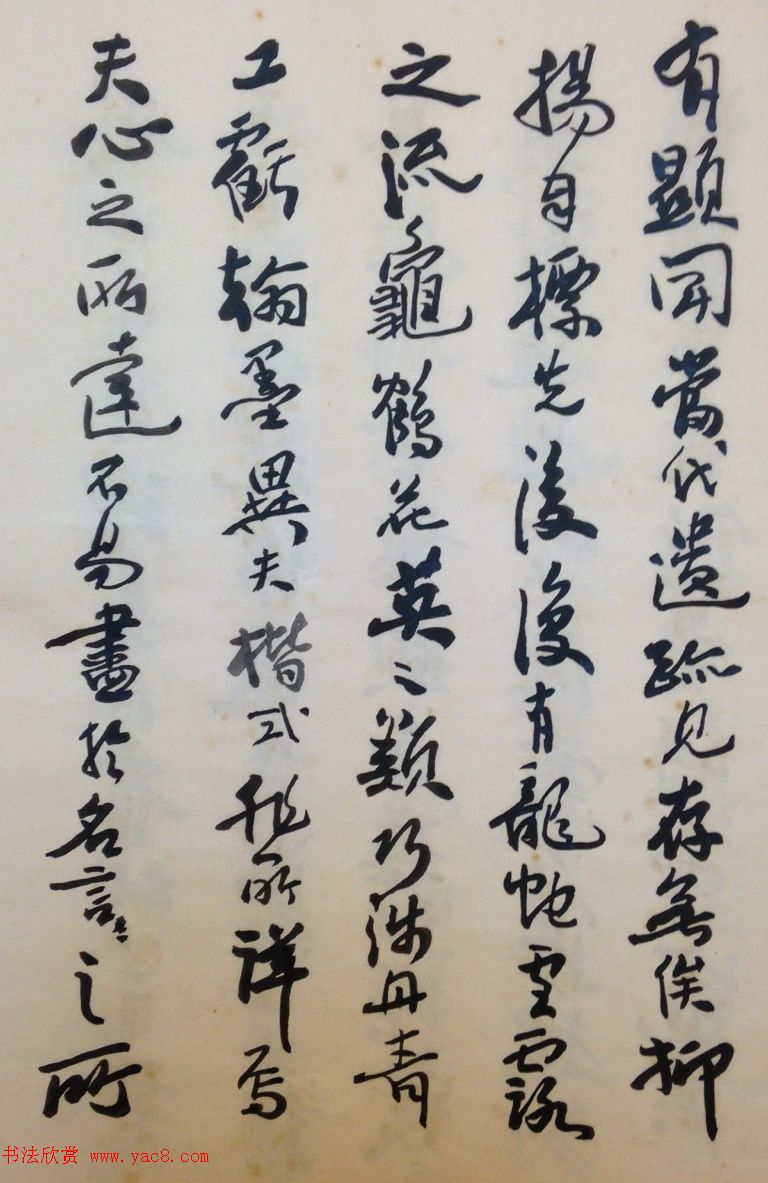 有顯聞當代遺跡見存無俟抑
揚自標先後復有龍蛇雲露
之流龜鶴花英之類巧涉丹青
工虧翰墨異夫楷式非所詳焉
夫心之所達不易盡於名言〻之所
书法欣赏 www.yac8.com